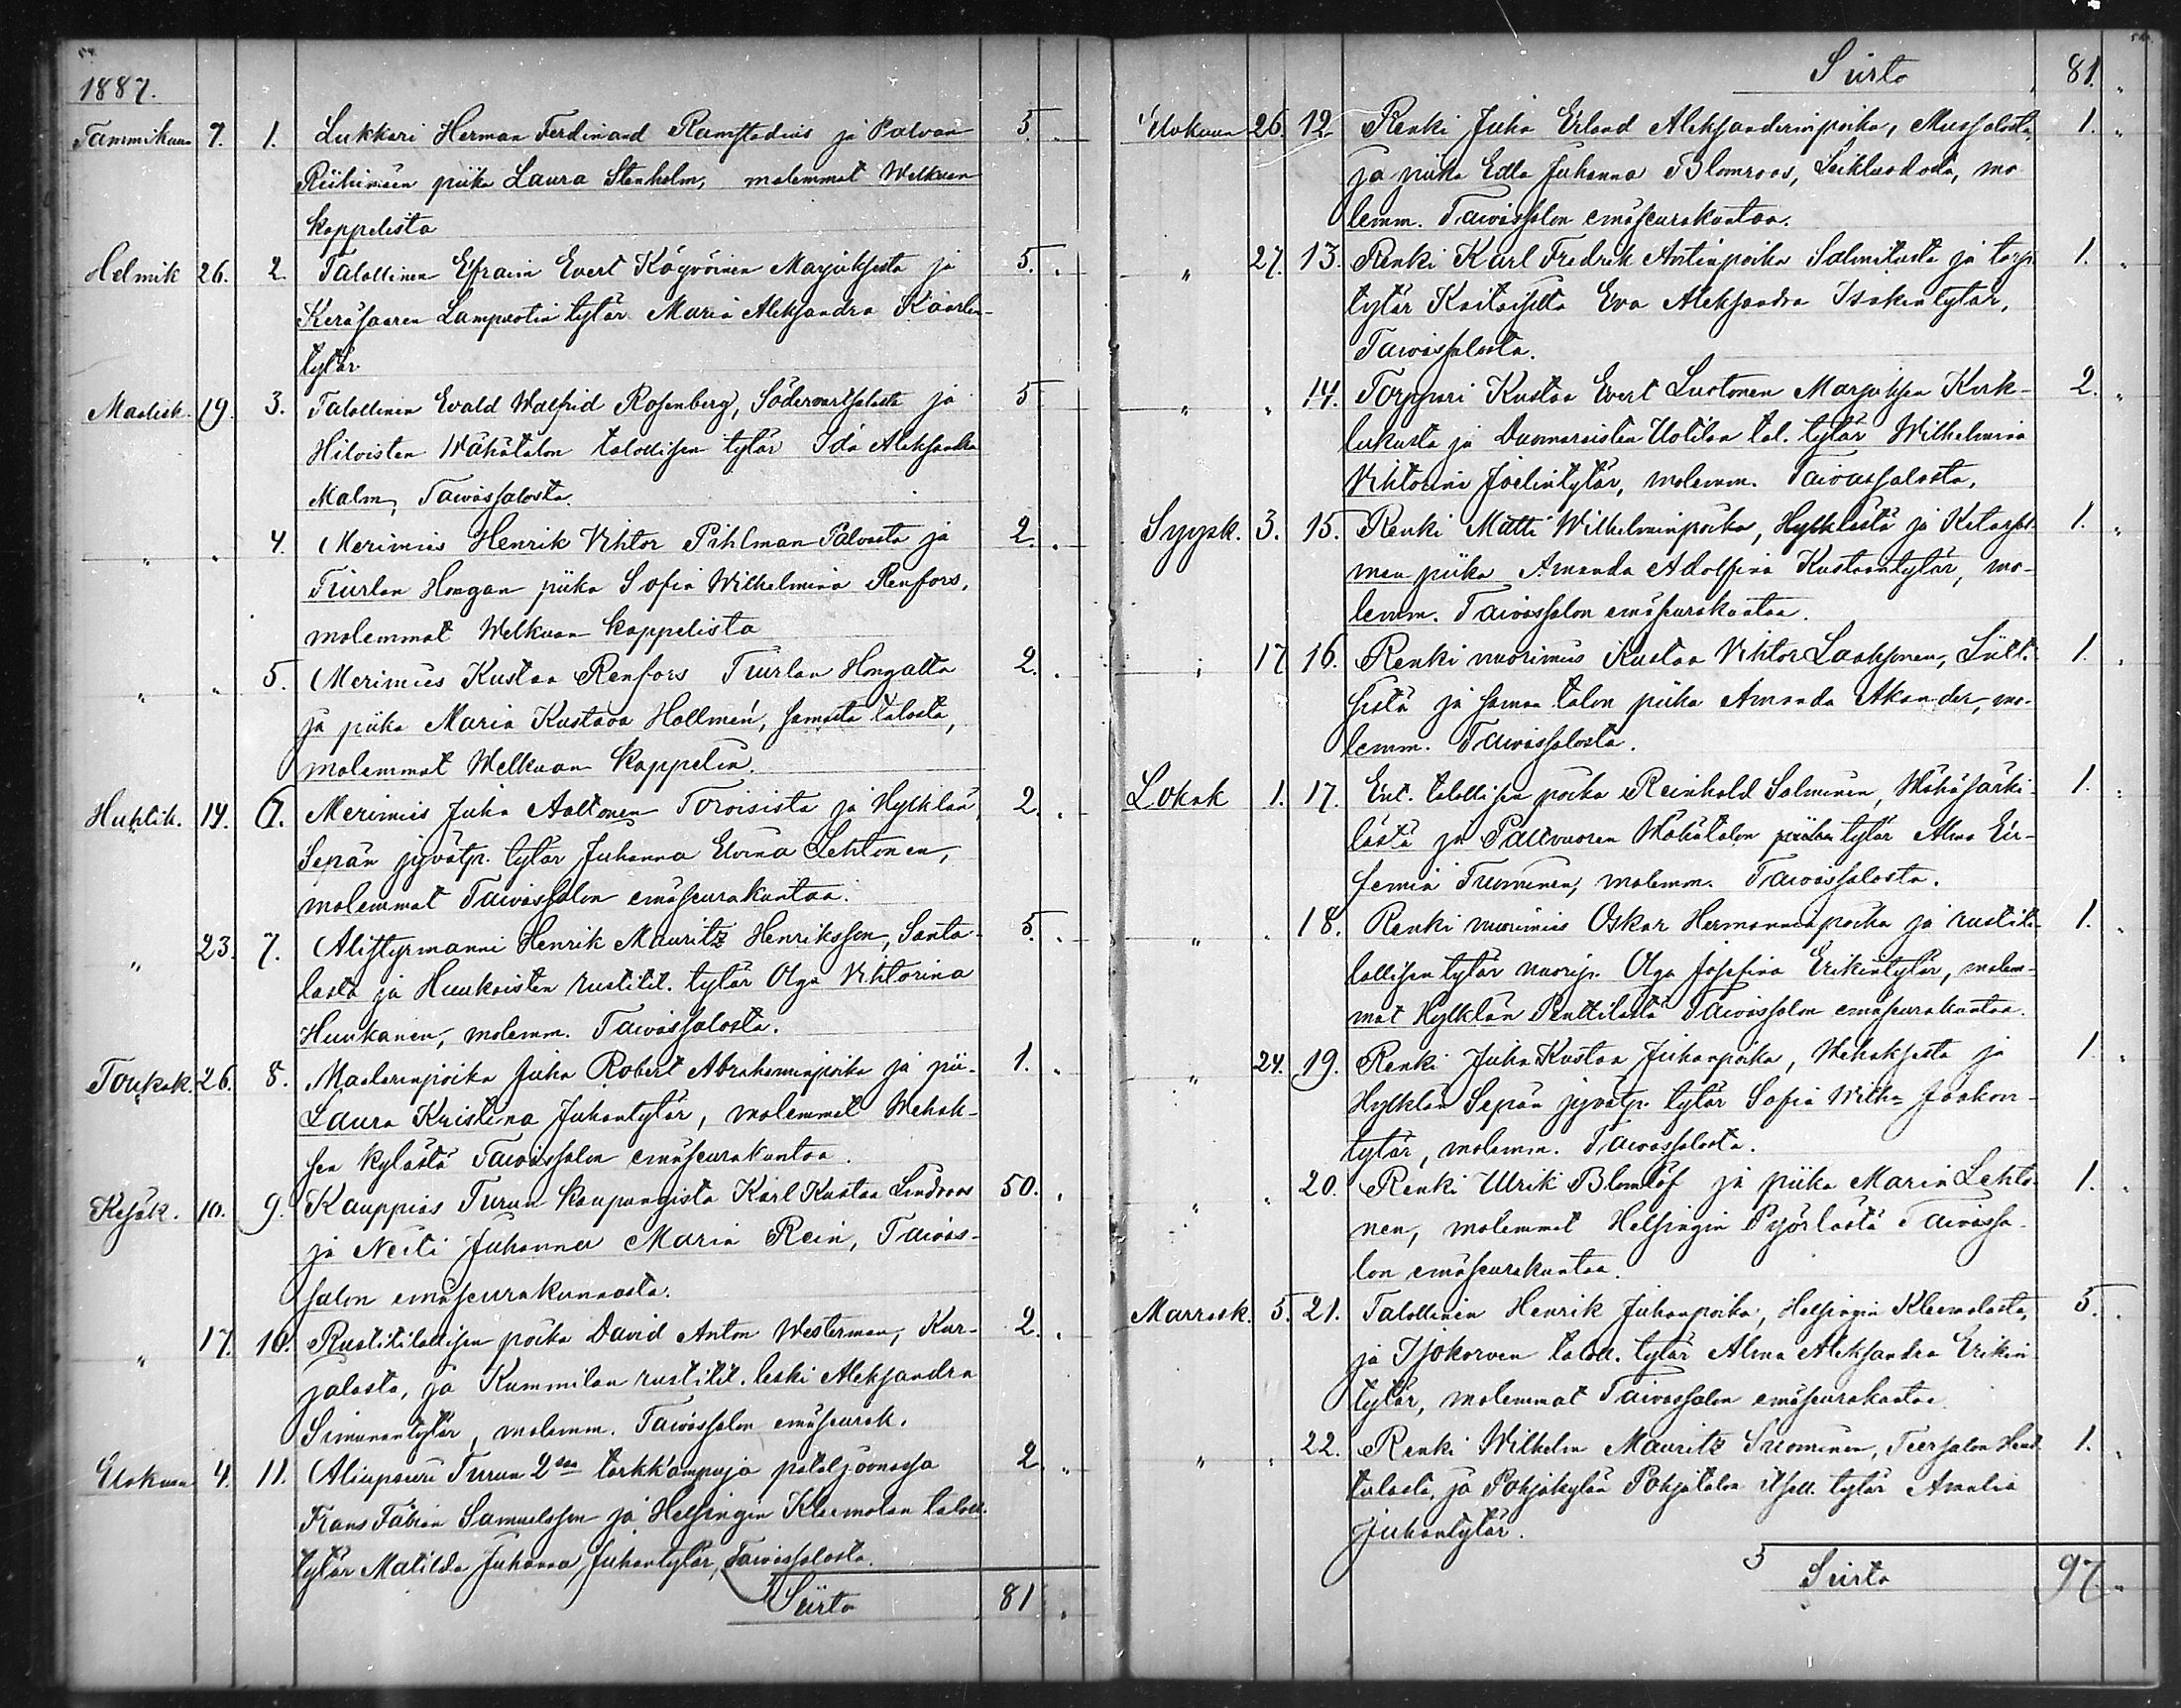 1887.
Tammikuun 7. 1. Lukkari Herman Ferdinand Ramstadius ja Palvan 5. „
Riihimäen piika Laura Stenholm, molemmat Welkuan
kappelista
Helmik 26. 2. Talollinen Efraim Evert Marjuksesta ja 5. „
Keräsaaren Lampuotin tytär Maria Aleksandra Kaarlen-
tytär
Maalisk. 19. 3. Talollinen Evald Walfrid Rosenberg, ja 5
Hiloisten Wähätalon talollisen tytär Ida Aleksandra
Malm, Taivassalosta.
„ „ 4. Merimies Henrik Vihtor Pihlman Palvasta ja 2. „
Tiurlan Hongan piika Sofia Wilhelmina Renfors,
molemmat Welkuan kappelista
„ „ 5. Merimies Kustaa Renfors Tiurlan Hongalta 2. „
ja piika Maria Kustava Hollmén, samasta talosta,
molemmat Welkuan kappelia.
Huhtik. 14. 6. Merimies Juha Aaltonen Toroisista ja Hylklän 2. „
Sepän jyvätp. tytär Juhanna Elvina Lehtonen,
molemmat Taivassalon emäseurakuntaa.
„ 23. 7. Alistyrmanni Henrik Mauritz Henriksson, Santa- 5. „
lasta ja Huukaisten rustitil. tytär Olga Vihtorina
Huukanen, molemm. Taivassalosta.
Toukok. 26. 8. Maalarinpoika Juha Robert Abrahaminpoika ja pii- 1. „
Laura Kristina Juhantytär, molemmat Wehak-
sen kylästä Taivassalon emäseurakuntaa.
Kesäk. 10. 9. Kauppias Turun kaupungista Karl Kustaa Lindroos 50. „
ja Neiti Juhanna Maria Rein, Taivas-
salon emäseurakunnasta.
„ 17. 10. Rustitilallisen poika David Anton Westerman, Kur-
jalasta, ja Kummilan rustitil. leski Aleksandra 2. „
Simunantytär, molemm. Taivassalon emäseurak.
Elokuun 4. 11. Aliupseeri Turun 2sen tarkk'ampuja pataljoonassa 2 „
Frans Fabian Samuelsson ja Helsingin Kleemolan taloll.
tytär Matilda Juhanna Juhantytär, Taivassalosta.
Siirto 81 „
Siirto 81. „
Elokuun 26. 12. Renki Juha Erland Aleksanderinpoika, Mussalosta, 1. „
ja piika Edla Juhanna Blomroos, mo
lemm. Taivassalon emäseurakuntaa.
„ 27. 13. Renki Karl Fredrik Antinpoika ja torp. 1. „
tytär Eva Aleksandra Isakintytär,
Taivassalosta.
„ „ 14. Torppari Kustaa Evert Luotonen Marjuksen Kirk- 2. „
lukusta ja Uotilan tal. tytär Wilhelmina
Vihtorina Joelintytär, molemm. Taivassalosta,
Syysk. 3. 15. Renki Matti Wilhelminpoika, Hylklästä ja 1. „
man piika Amanda Adolfina Kustaantytär, mo-
lemm. Taivassalon emäseurakuntaa.
„ 17 16. Renki nuorimies Kustaa Vihtor Laaksonen, 1. „
sistä ja saman talon piika Amanda Akander, mo-
lemm. Taivassalosta.
Lokak 1. 17. Ent. talollisen poika Reinhold Salminen, Wähäsärki- 1. „
lästä ja Pallvuoren Wähätalon tytär Alma Eu-
femia Tuominen, molemm. Taivassalosta.
„ „ 18. Renki nuorimies Oskar Hermanninpoika ja rustiti- 1. „
lallisen tytär nuorip. Olga Josefina Erikintytär, molem-
mat Hylklän Penttilästä Taivassalon emäseurakuntaa.
„ 24. 19. Renki Juha Kustaa Juhanpoika, Wehaksesta ja 1. „
Hylklän Sepän jyvätp. tytär Sofia Wilh:a Jaakon-
tytär, molemm. Taivassalosta.
„ „ 20. Renki Ulrik Blomlöf ja piika Maria Lehto- 1. „
nen, molemmat Helsingin Pyörlästä Taivassa-
lon emäseurakuntaa.
Marrask. 5. 21. Talollinen Henrik Juhanpoika, Helsingin Kleemolasta, 5. „
ja Isokorven taloll. tytär Alma Aleksandra Erikin-
tytär, molemmat Taivassalon emäseurakuntaa.
„ „ 22. Renki Wilhelm Mauritz Suominen, Teersalon 1. „
ja Pohjakylän Pohjatalon itsell. tytär Amalia
Juhantytär.
Siirto 97. „